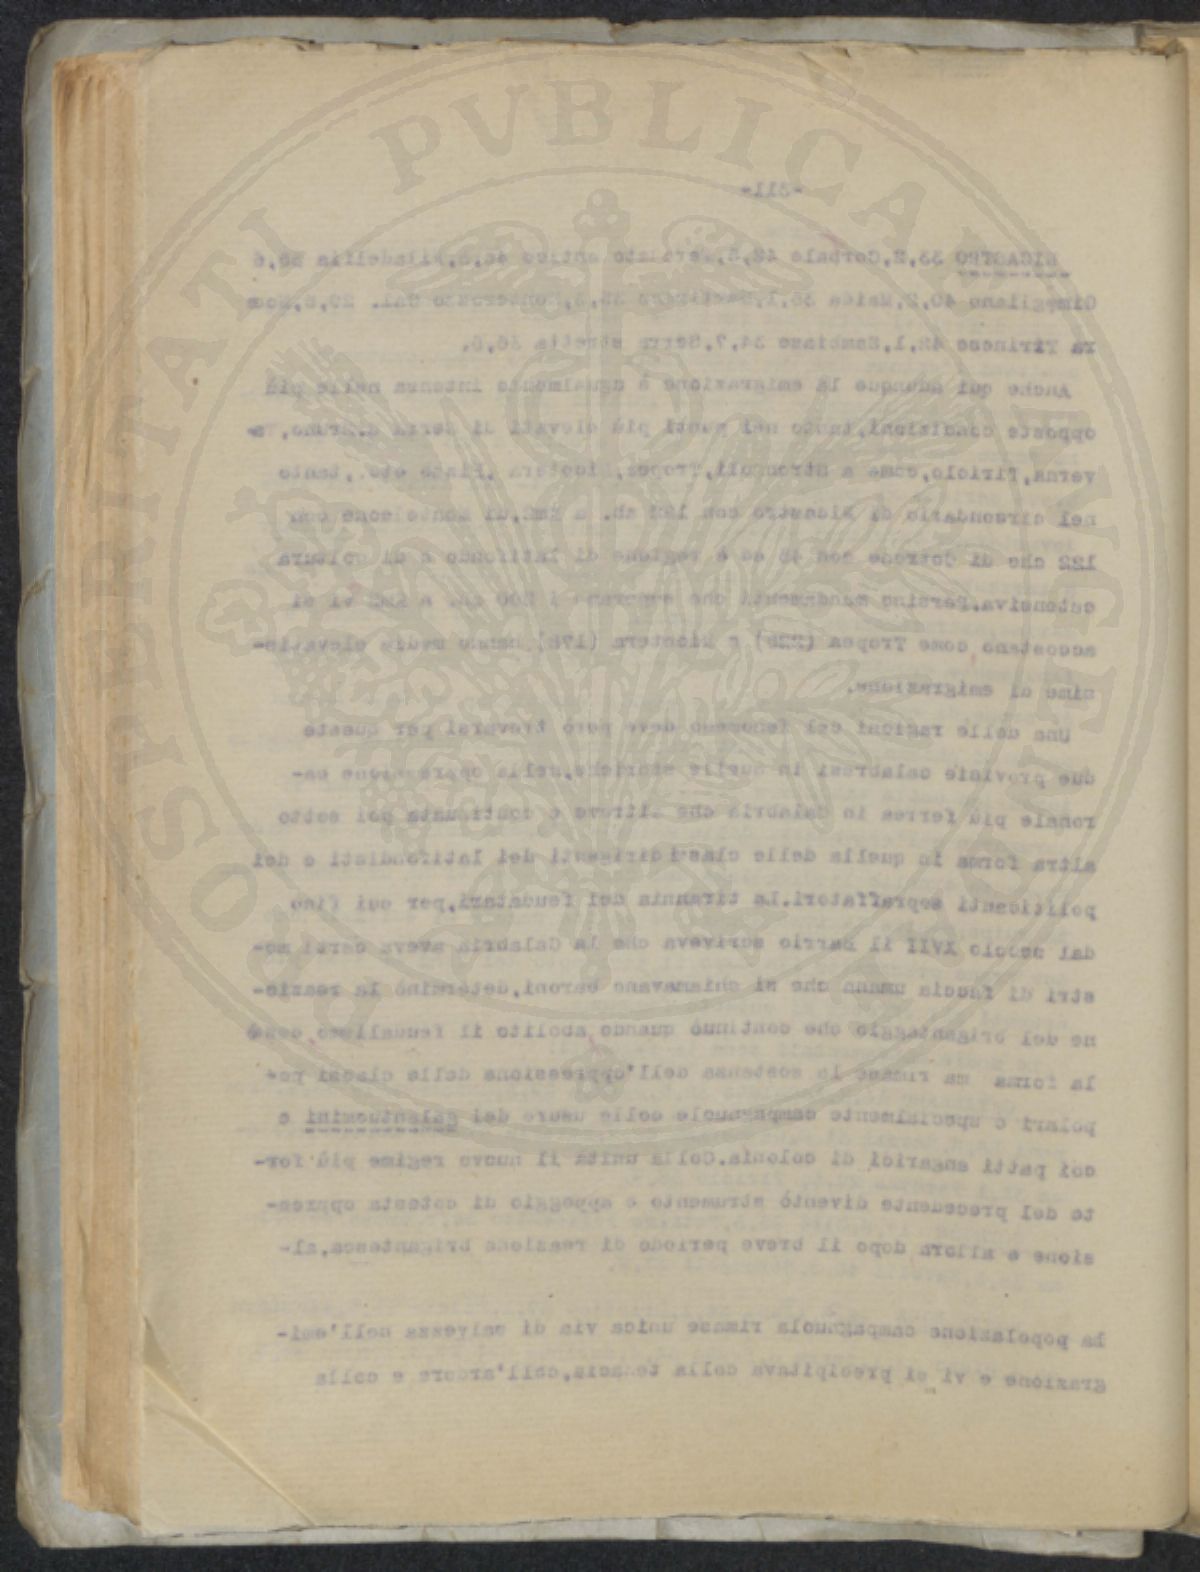 -311-
NICASTRO 33,2,Cortale 42,5, antico 46,5,Filadelfia 36,6
Gimigliano 40,2,Maida 36,1, 29,8,Noce
ra Tirinese 42,1,Sambiase 34,7,Serra stretta 36,6.
Anche qui dunque la emigrazione è ugualmente intensa nelle più
opposte condizioni,tanto nei punti più elevati di Serra S.Bruno,Ta-
verna,Tiriolo,come a Strongoli,Tropea,Nicotera, etc.,tanto
nel circondario di Nicastro con 121 ab. a Km2,di Monteleone con
122 che di Cotrone con 45 ed è regione di latifondo e di coltura
estensiva.Persino mandamenti che superano i 200 ab. a Km2 vi si
accostano come Tropea (228) e Nicotera (178) hanno medie elevatis-
sime di emigrazione.
Una delle ragioni del fenomeno deve però trovarsi per queste
due provincie calabresi in quelle storiche,nella oppressione ba-
ronale più ferrea in Calabria che altrove e continuata poi sotto
altra forma in quella delle classi dirigenti dei latifondisti e dei
politicanti sopraffatori.La tirannia dei feudatari,per cui fino
dal secolo XVII il Barrio scriveva che la Calabria aveva certi mo-
stri di faccia umana che si chiamavano baroni,determinò la reazio-
ne del brigantaggio che continuò quando abolito il feudalismo cessò
la forma ma rimase la sostanza dell'oppressione delle classi po-
polari e specialmente campagnuole colle usure dei galantuomini e
coi patti angarici di colonia.Colla unità il nuovo regime più for-
te del precedente diventò strumento e appoggio di cotesta oppres-
sione e allora dopo il breve periodo di reazione brigantesca,al-
la popolazione campagnuola rimase unica via di salvezza nell'emi-
grazione e vi si precipitava colla tenacia,coll'ardore e colla
PROSPERITATI PVBLICAE AVGENDAE